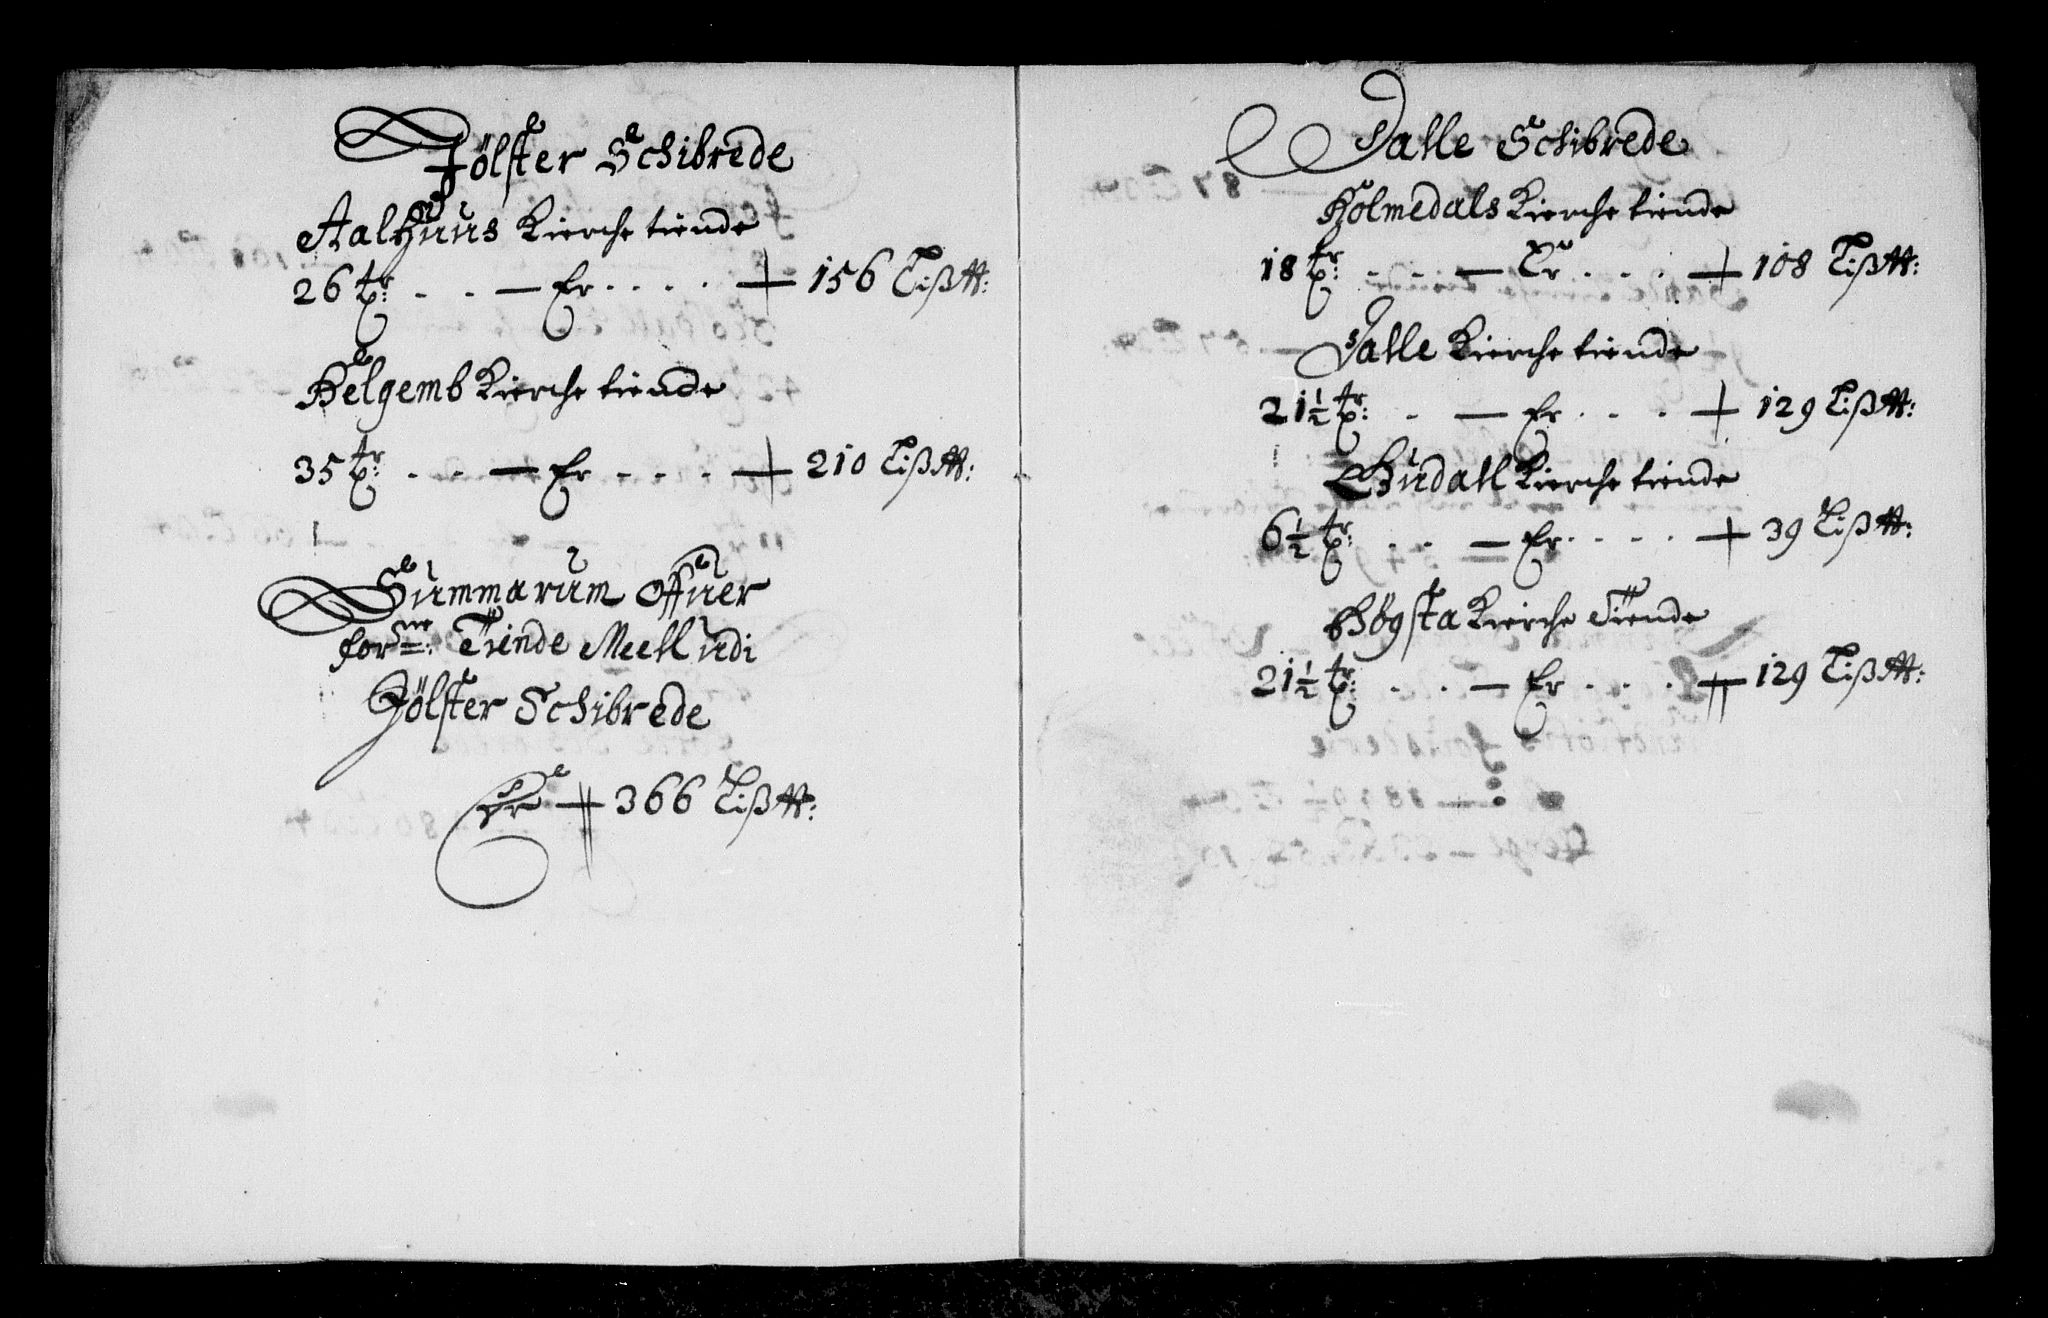 Jölster Schibrede
Aalhuus Kierche tiende
26 tr: . . — Er . . . . 156 Lißtt:
Helgemb Kierche tiende
35 tr: . . . — Er . . . . 210 Lißtt:
Summarum Offuer
forne: Tiende Meell udi
Jölster Schibrede
Er 366 Lißtt:
Dalle Schibrede
Holmedals Kierche tiende
18 tr: . . . — Er . . . 108 Lißtt:
Dalle Kierche tiende
21½ tr: . . — Er . . . 129 Lißtt:
Guddall Kierche tiende
6½ tr: . . — Er . . . . 39 Lißtt:
Høgsta Kierche Tiende
21½ tr: . . . — Er . . . 129 Lißtt: